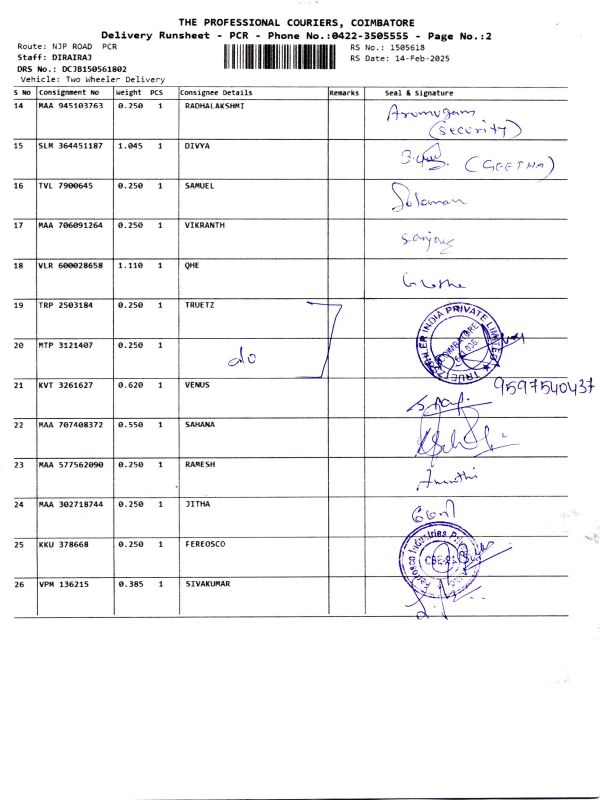 THE PROFESSIONAL COURIERS, COIMBATORE
Delivery Runsheet - PCR - Phone No.:0422-3505555 - Page No.:2
Route: NJP ROAD PCR
RS No.: 1505618
Staff: DIRAIRAJ
RS Date: 14-Feb-2025
DRS No.: DCJB150561802
Vehicle: Two Wheeler Delivery
S No Consignment No Weight PCS Consignee Details Remarks Seal & Signature
14 MAA 945103763 0.250 1 RADHALAKSHMI Arumugam
(Security)
15 SLM 364451187 1.045 1 DIVYA (GEETHA)
16 TVL 7900645 0.250 1 SAMUEL Solomon
17 MAA 706091264 0.250 1 VIKRANTH Sanjay
18 VLR 600028658 1.110 1 QHE
19 TRP 2503184 0.250 1 TRUETZ
20 MTP 3121407 0.250 1 do
INDIA PRIVATE LIMITED
COIMBATORE
21 KVT 3261627 0.620 1 VENUS 9597540437
22 MAA 707408372 0.550 1 SAHANA
23 MAA 577562090 0.250 1 RAMESH
24 MAA 302718744 0.250 1 JITHA
25 KKU 378668 0.250 1 FEREOSCO
26 VPM 136215 0.385 1 SIVAKUMAR